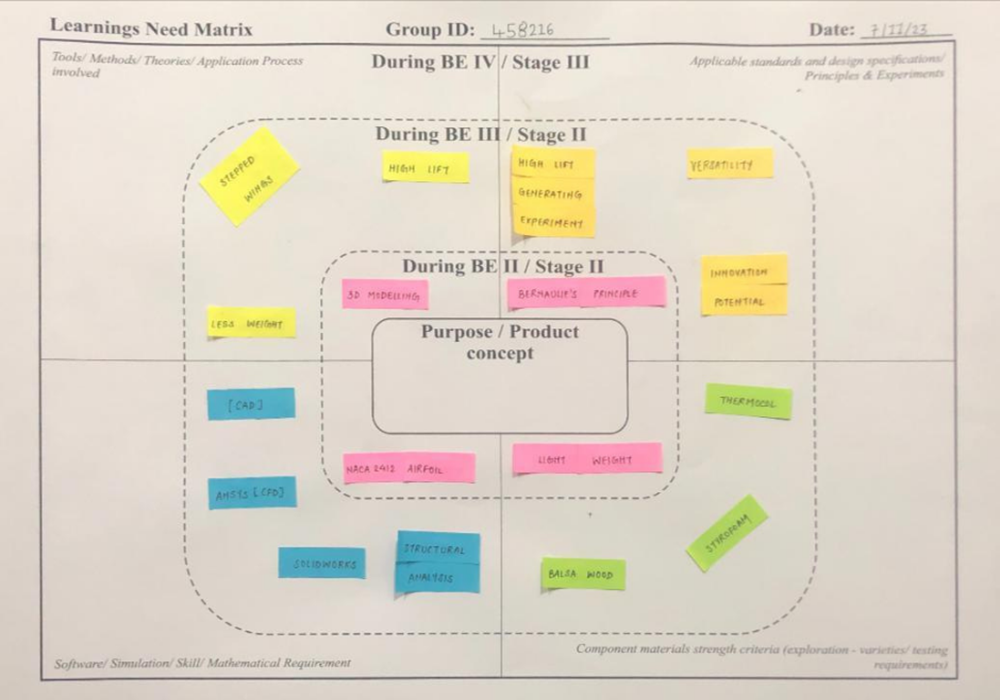 Learnings Need Matrix
Group ID: 458216
Date: 7/11/23
Tools/ Methods/ Theories/ Application Process
involved
During BE IV / Stage III
Applicable standards and design specifications/
Principles & Experiments
During BE III / Stage II
STEPPED
WINGS
HIGH LIFT
HIGH LIFT
GENERATING
EXPERIMENT
VERSATILITY
During BE II / Stage II
3D MODELLING
BERNAULIF'S PRINCIPLE
INNOVATION
POTENTIAL
LESS WEIGHT
Purpose / Product
concept
[CAD]
THERMOCOL
NACA 2412 AIRFOIL
LIGHT WEIGHT
ANSYS [CFD]
STYROFOAM
SOLIDWORKS
STRUCTURAL
ANALYSIS
BALSA WOOD
Software/ Simulation/ Skill/ Mathematical Requirement
Component materials strength criteria (exploration - varieties/ testing
requirements)